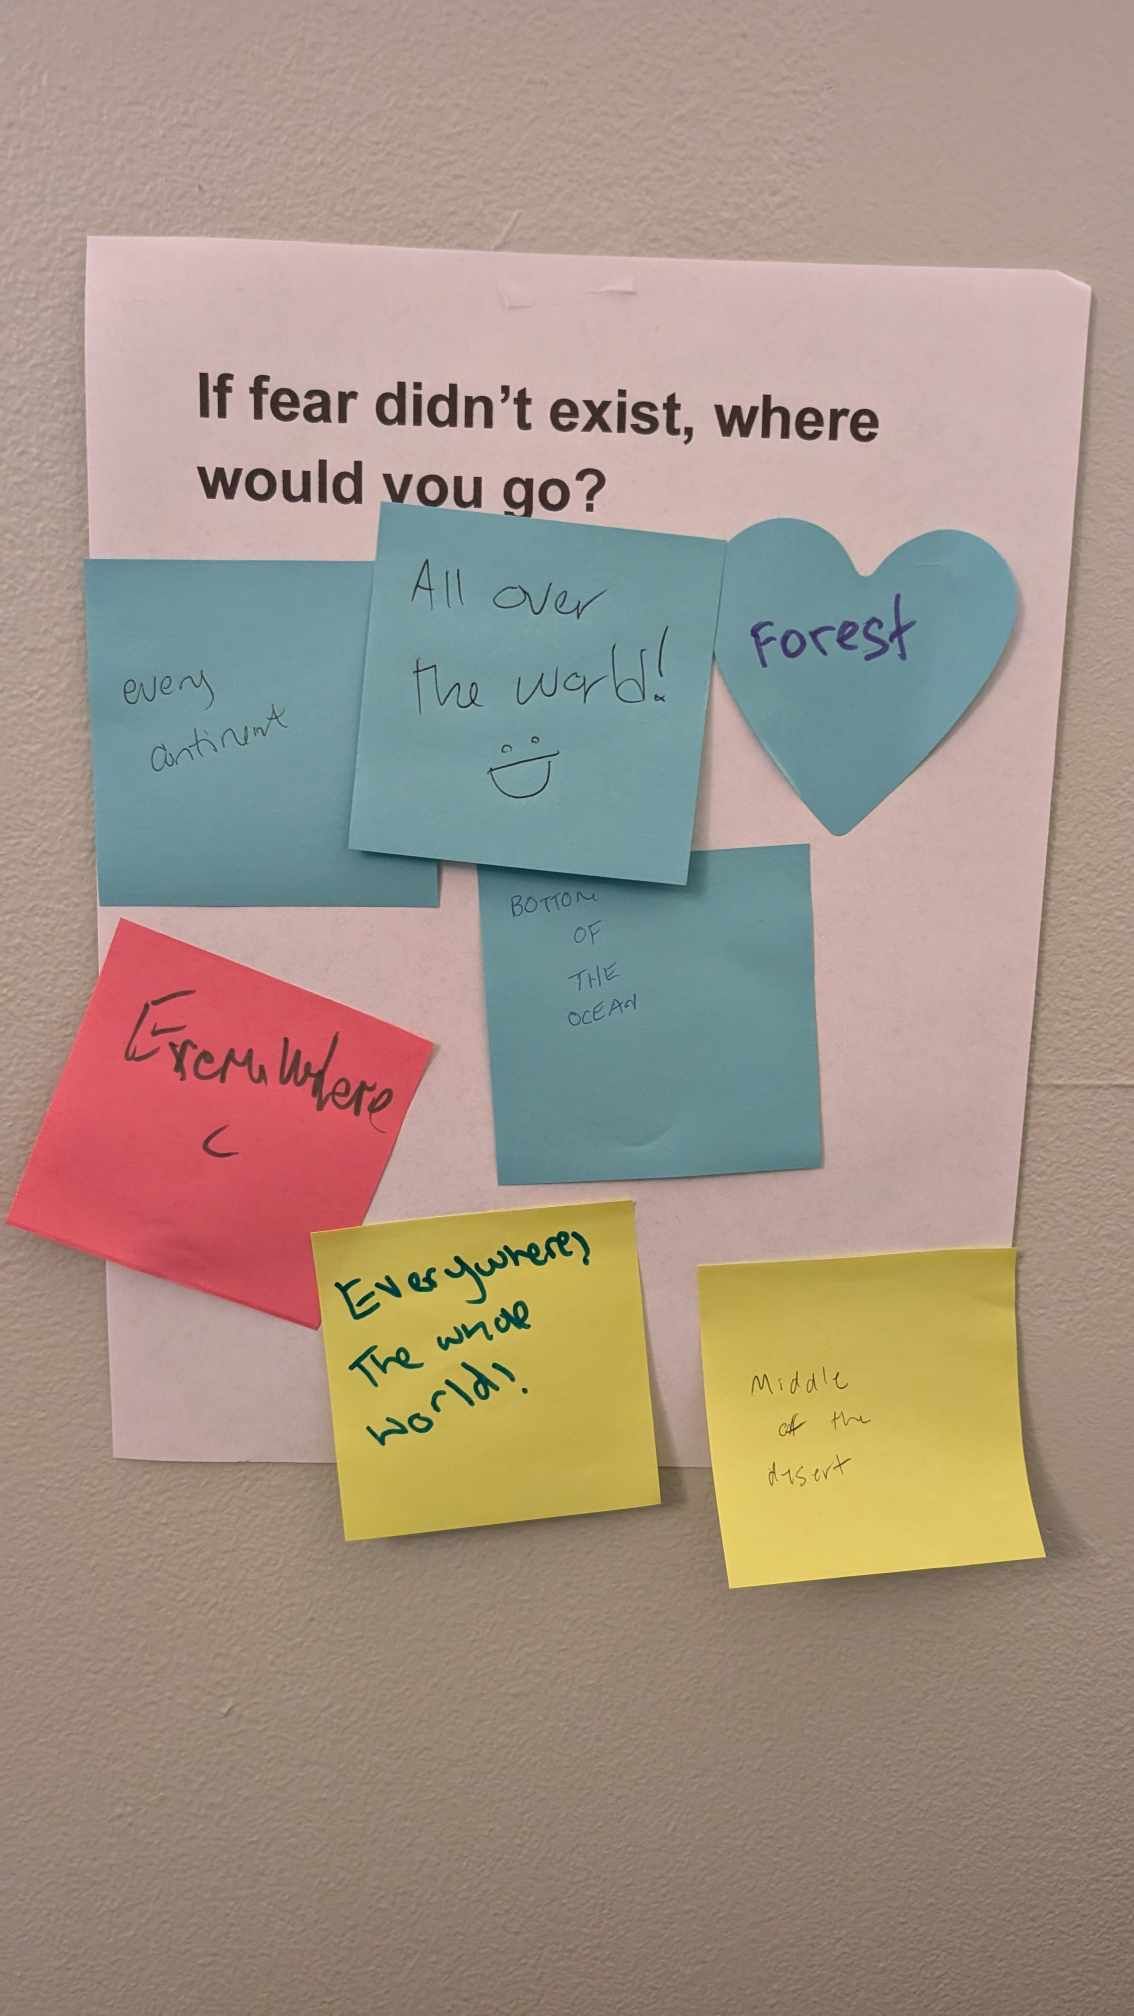 If fear didn't exist, where
would you go?
every
continent
All over
the world!
Forest
BOTTOM
OF
THE
OCEAN
Everywhere
Everywhere,
The whole
world!
Middle
of the
desert